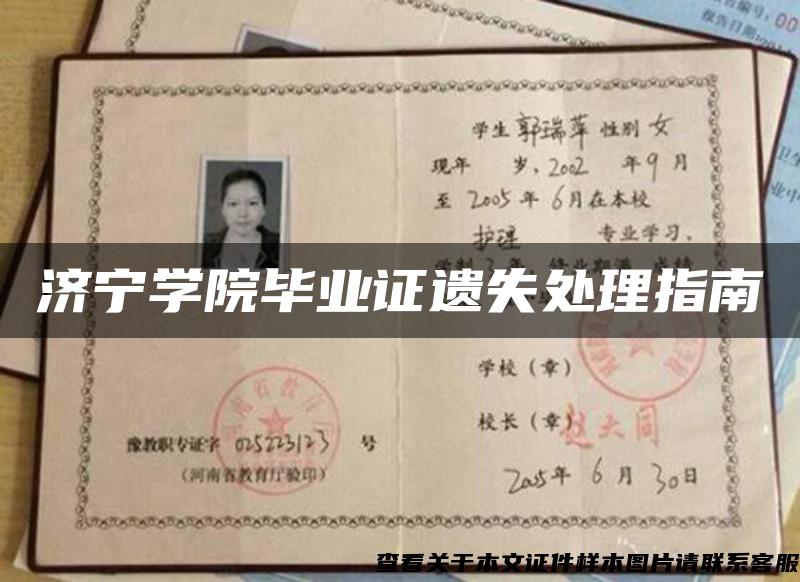 编号:00
报告日期:201
学生 郭瑞萍 性别 女
现年 岁,2002 年 9 月
至 2005 年 6 月在本校
护理 专业学习,
济宁学院毕业证遗失处理指南
学校(章)
校长(章) 赵大同
豫教职专证字 025223123 号
(河南省教育厅验印)
2005 年 6 月 30 日
查看关于本文证件样本图片请联系客服